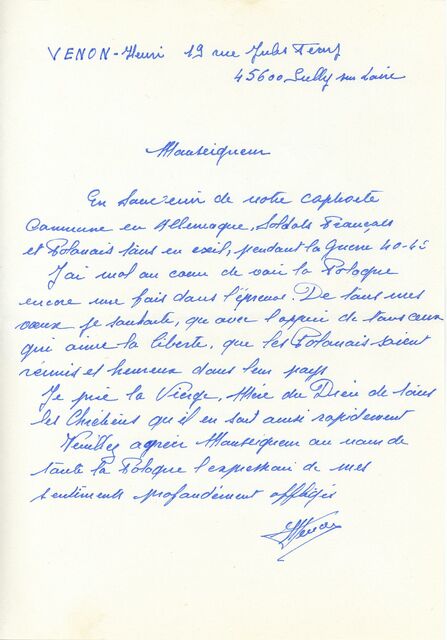 VENON-Henri 19 rue Jules Ferry
45600 Sully sur Loire
Monseigneur
En Souvenir de notre captivité
Commune en Allemagne, Soldats Français
et Polonais tous en exil, pendant la Guerre 40-45
J'ai mal au coeur de voir la Pologne
encore une fois dans l'épreuve. De tous mes
voeux je souhaite, que avec l'appui de tous ceux
qui aime la liberté, que les Polonais soient
réunis et heureux dans leur pays
Je prie la Vierge, Mère du Dieu de tous
les Chrétiens qu'il en soit ainsi rapidement
Veuillez agréer Monseigneur au nom de
toute la Pologne l'expression de mes
sentiments profondément affligés
HVenon